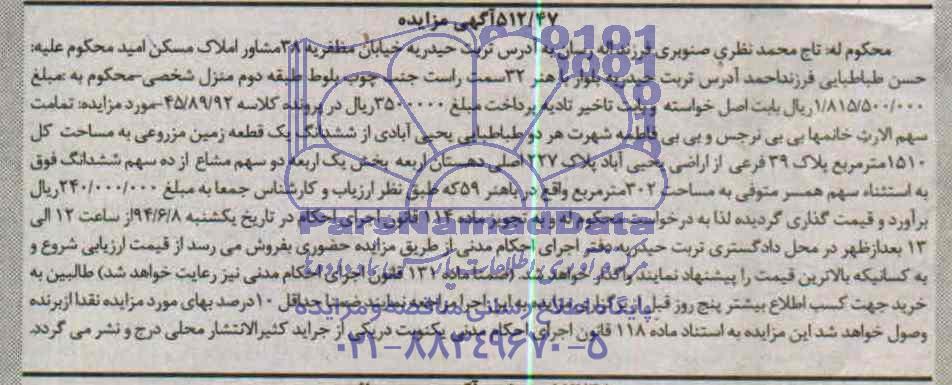 ۵۱۲/۴۷آگهی مزایده
محکوم له: تاج محمد نظری صنوبری فرزند اله رسان به آدرس تربت حیدریه خیابان مظفریه ۳۸مشاور املاک مسکن امید محکوم علیه:
حسن طباطبایی فرزنداحمد آدرس تربت حیدریه بلوار باهنر ۳۲سمت راست جنب چوب بلوط طبقه دوم منزل شخصی-محکوم به :مبلغ
۱/۸۱۵/۵۰۰/۰۰۰ریال بابت اصل خواسته و بابت تاخیر تادیه پرداخت مبلغ ۳۵۰۰۰۰۰ریال در پرونده کلاسه ۴۵/۸۹/۹۲-مورد مزایده: تمامت
سهم الارث خانمها بی بی نرجس و بی بی فاطمه شهرت هر دو طباطبایی یحیی آبادی از ششدانگ یک قطعه زمین مزروعی به مساحت کل
۱۵۱۰مترمربع پلاک ۳۹ فرعی از اراضی یحیی آباد پلاک ۲۲۷اصلی دهستان اربعه بخش یک اربعه دو سهم مشاع از ده سهم ششدانگ فوق
به استثناء سهم همسر متوفی به مساحت ۳۰۲مترمربع واقع در باهنر ۵۹که طبق نظر ارزیاب و کارشناس جمعا به مبلغ ۲۴۰/۰۰۰/۰۰۰ریال
برآورد و قیمت گذاری گردیده لذا به درخواست محکوم له و به تجویز ماده ۱۱۴ قانون اجرای احکام در تاریخ یکشنبه ۹۴/۶/۸از ساعت ۱۲ الی
۱۳ بعدازظهر در محل دادگستری تربت حیدریه دفتر اجرای احکام مدنی از طریق مزایده حضوری بفروش می رسد از قیمت ارزیابی شروع و
به کسانیکه بالاترین قیمت را پیشنهاد نمایند واگذار خواهد شد (ضمنا ماده ۱۳۱ قانون اجرای احکام مدنی نیز رعایت خواهد شد) طالبین به
خرید جهت کسب اطلاع بیشتر پنج روز قبل از برگزاری مزایده به این اجرا مراجعه نمایند ضمنا حداقل ۱۰درصد بهای مورد مزایده نقدا ازبرنده
وصول خواهد شد این مزایده به استناد ماده ۱۱۸ قانون اجرای احکام مدنی یکنوبت دریکی از جراید کثیرالانتشار محلی درج و نشر می گردد.
ParsNamadData
پایگاه اطلاع رسانی مناقصه و مزایده
۰۲۱-۸۸۳۴۹۶۷۰-۵